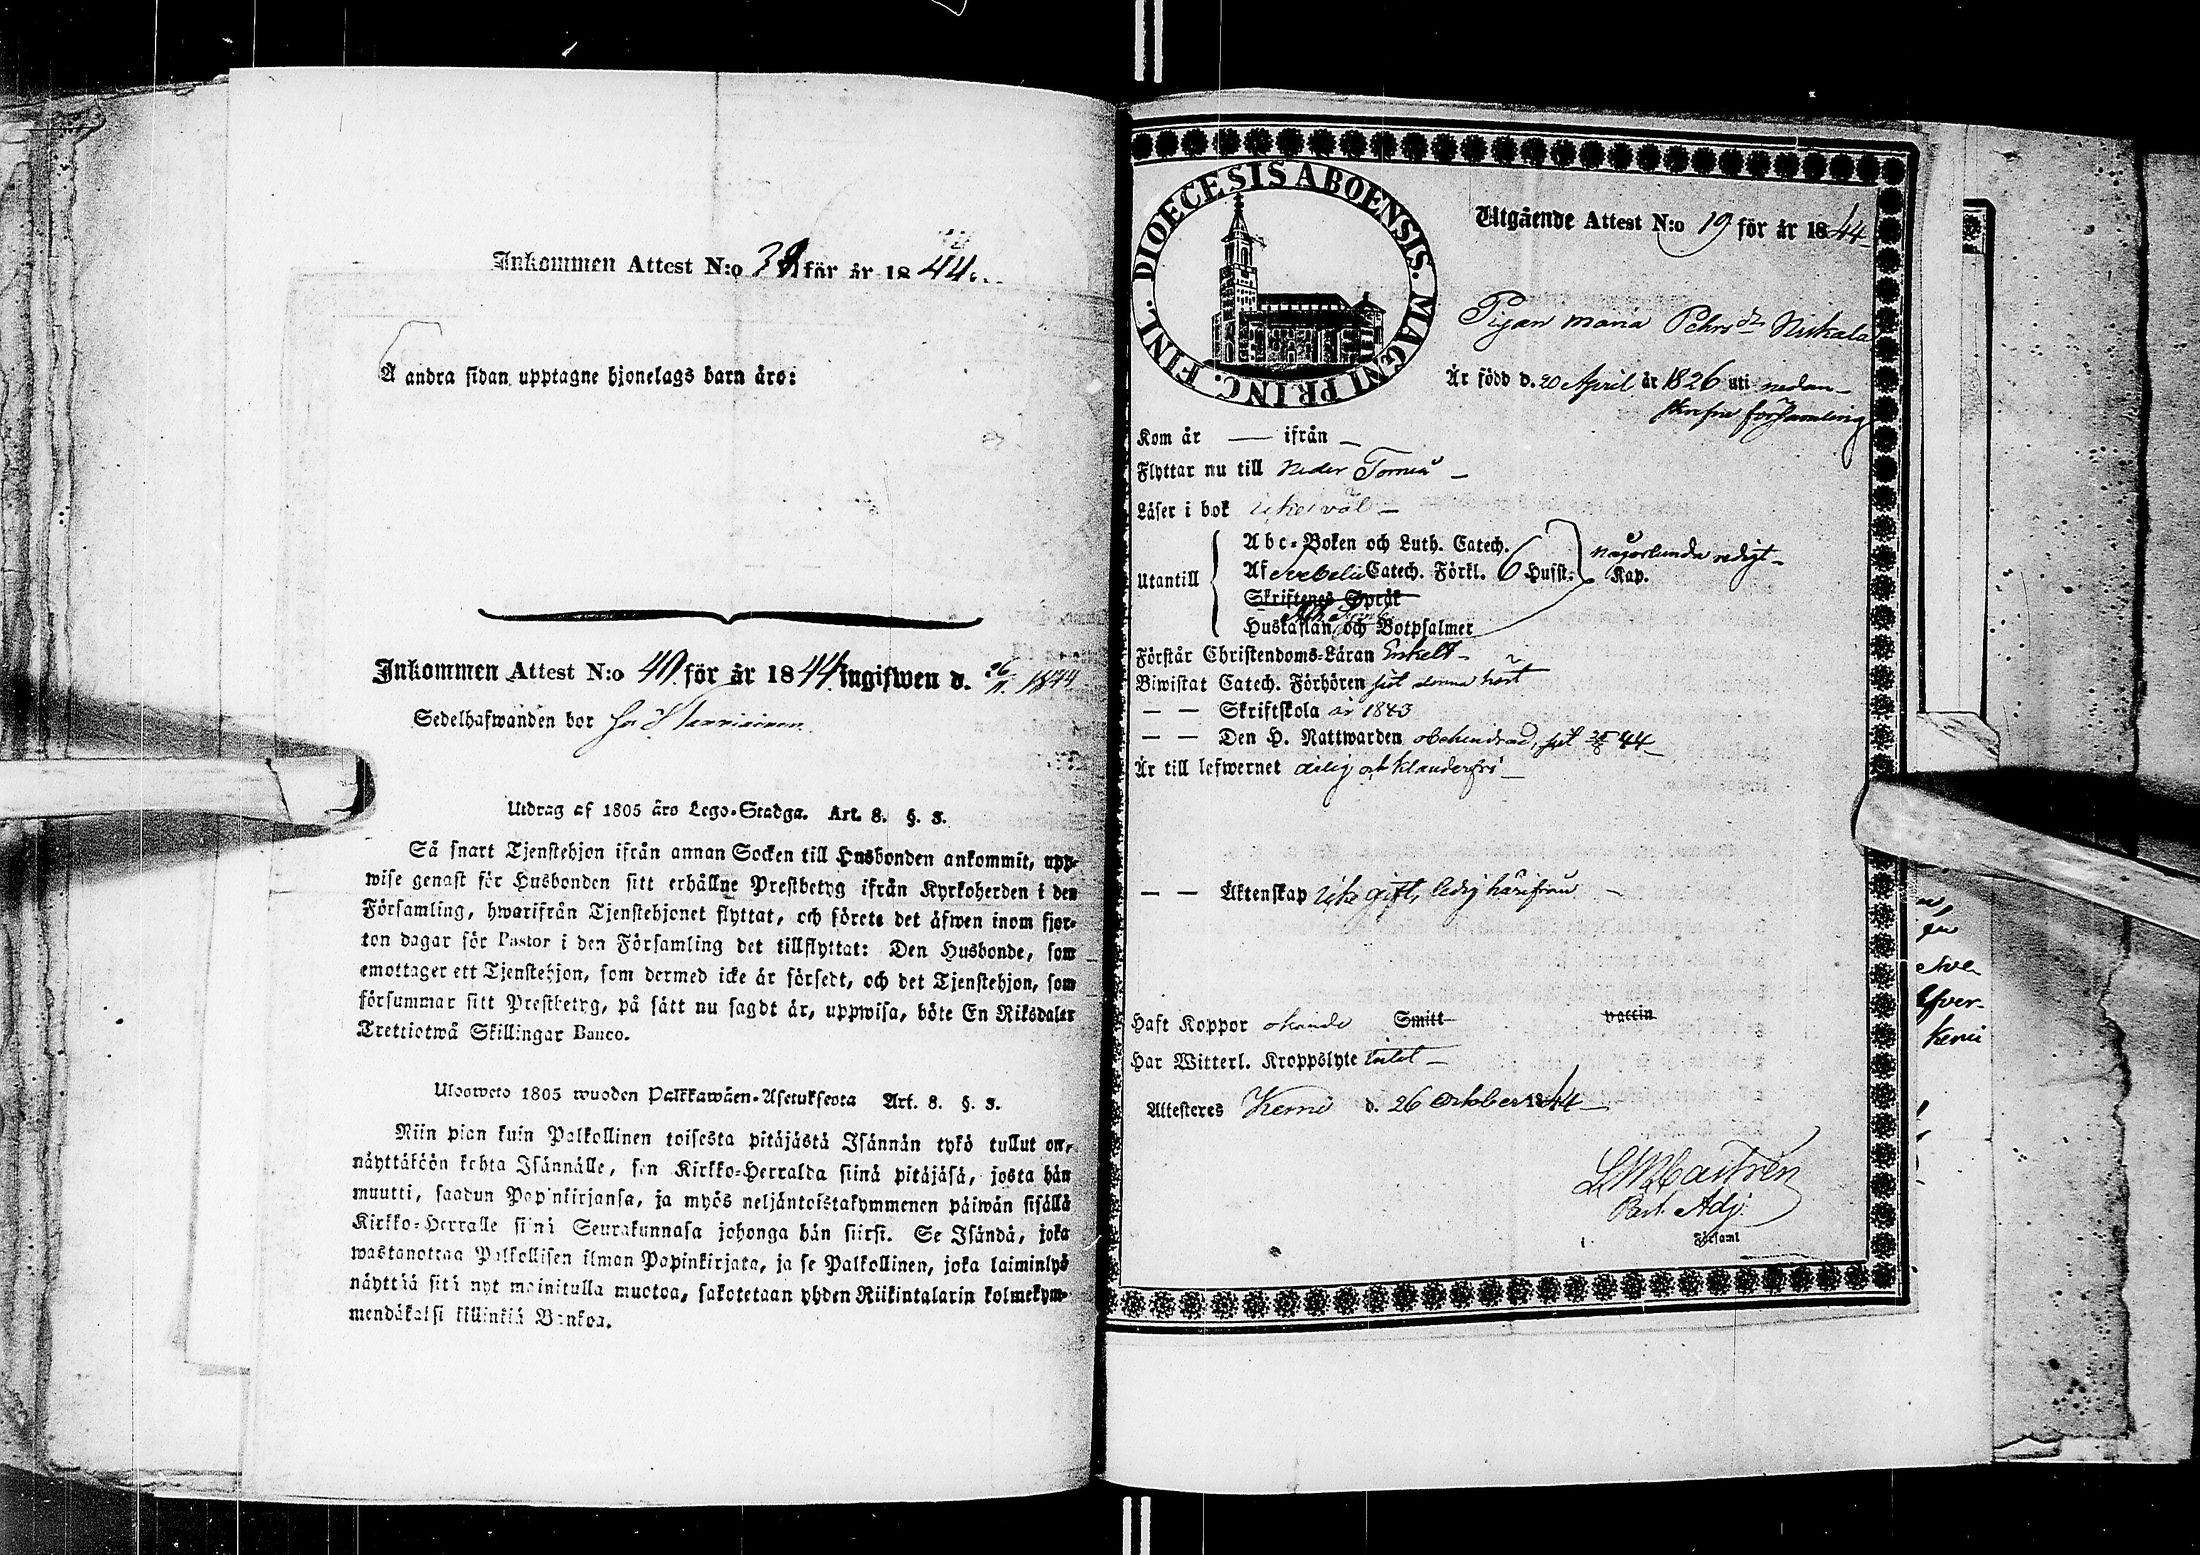 Inkommen Attest N:o 39. för år 1844.
Å andra sidan upptagne hjonelags barn äro:
Inkommen Attest N:o 40. för år 1844. ingifwen d. 26/11 1844
Sedelhafwanden bor
Utdrag af 1805 års Lego-Stadga. Art. 8. §. 3.
Så snart Tjenstehjon ifrån annan Socken till Husbonden ankommit, upp-
wise genast för Husbonden sitt erhållne Prestbetyg ifrån Kyrkoherden i den
Församling, hwarifrån Tjenstehjonet flyttat, och förete det äfwen inom fjor-
ton dagar för Pastor i den Församling det tillflyttat: Den Husbonde, som
emottager ett Tjenstehjon, som dermed icke är försedt, och det Tjenstehjon, som
försummar sitt Prestbetyg, på sätt nu sagdt är, uppwisa, böte En Riksdaler
Trettiotwå Skillingar Banco.
Uloswedo 1805 wuoden Palkkawäen-Asetuksesta Art. 8. §. 3.
Niin pian kuin Palkollinen toisesta pitäjästä Isännän tykö tullut on,
näyttäköön kohta Isännälle, sen Kirkko-Herralda siinä pitäjäsä, josta hän
muutti, saadun Papinkirjansa, ja myös neljäntoistakymmenen päiwän sisällä
Kirkko-Herralle siinä Seurakunnasa johonga hän siirsi. Se Isändä, joka
wastanottaa Palkollisen ilman Papinkirjata, ja se Palkollinen, joka laiminlyö
näyttää sitä nyt mainitulla muotoa, sakotetaan yhden Riikintalarin kolmekym-
mendäkaksi killinkiä Bankoa.
DIOECESIS ABOENSIS. MAGNI PRINC. FINL.
Utgående Attest N:o 19 för år 1844
Pigan Maria Pehrsdr Niskala
Är född d. 20 April år 1826 uti nedan-
skrefne församling
Kom år — ifrån —
Flyttar nu till Neder Torneå —
Läser i bok icke väl —
Utantill
Abc-Boken och Luth. Catech.
Af Svebelii Catech. Förkl. 6 Husst. Kap.
någorlunda redigt —
Skriftenes Språk
Hustaflan och Botpsalmer
Förstår Christendoms-Läran Enkelt —
Biwistat Catech. Förhören sist denna höst
— — Skriftskola år 1843
— — Den H. Nattwarden obehindrad, sist 44 —
Är till lefwernet ärlig och klanderfri —
— — Äktenskap icke gift, ledig härifrån —
Haft Koppor okände Smitt vaccin
Har Witterl. Kroppslyte intet —
Attesteres Kemi d. 26 October 1844 —
L M Castrén
Past. Adj.
i Församl
n,
Kemi